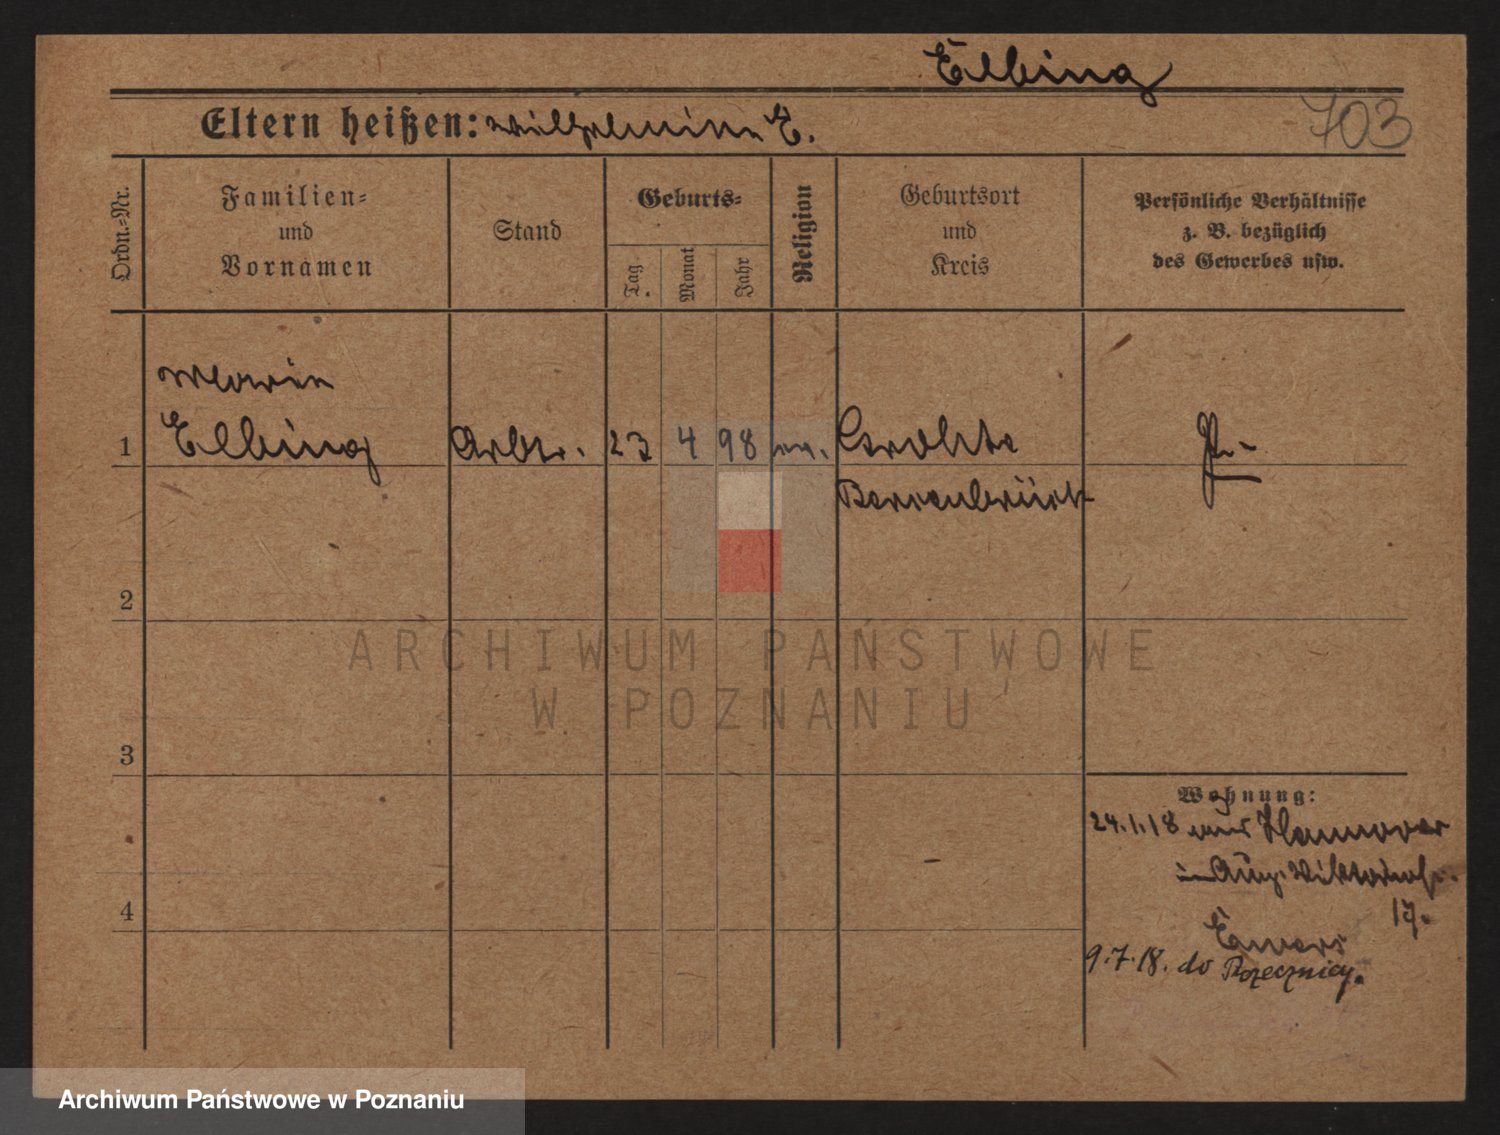 Elbing
Eltern heißen: Wilhelmine E.
703
Ordn.-Nr.
Familien-
und
Vornamen
Stand
Geburts-
Tag
Monat
Jahr
Religion
Geburtsort
und
Kreis
Persönliche Verhältnisse
z. B. bezüglich
des Gewerbes usw.
Marie
1 Elbing Arbtr. 23 4 98 ev. Grohte
Bersenbrück
2
ARCHIWUM PAŃSTWOWE
W POZNANIU
3
Wohnung:
24.1.18 aus Hannover
in Aug. Viktoriastr.
17.
4
Ewers
9.7.18. do Rzecznicy.
Archiwum Państwowe w Poznaniu